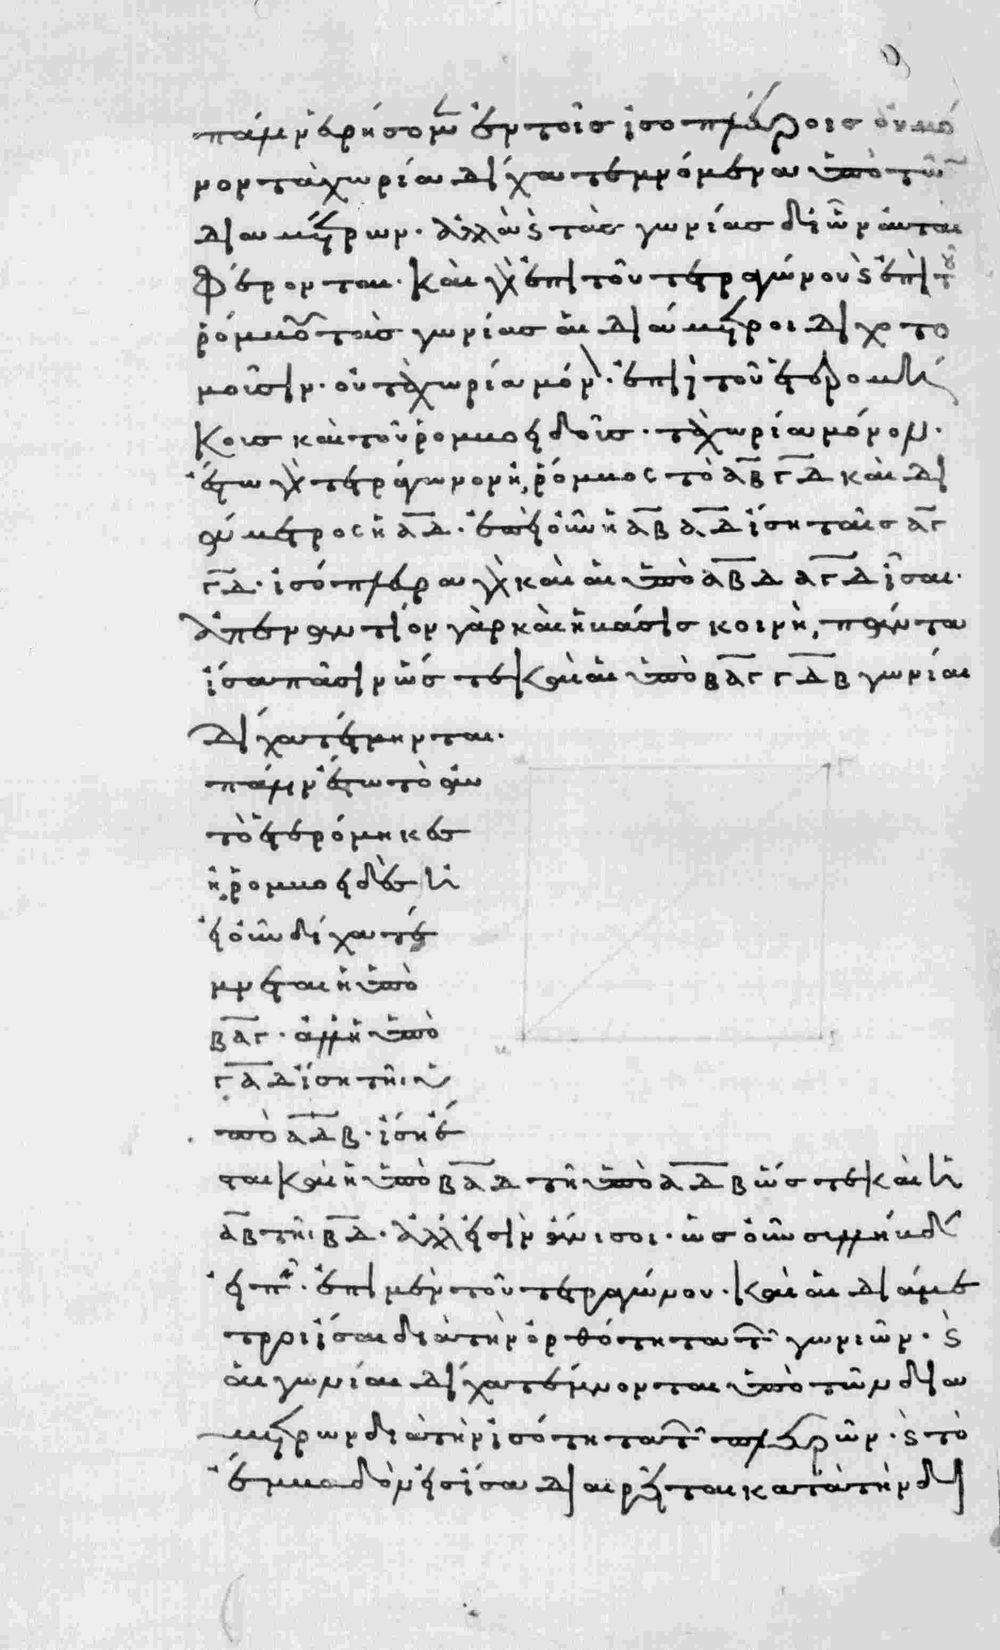 πάλιν εὑρήσομεν ἐν τοῖς ἰσοπλεύροις οὐ μό
νον τὰ χωρία δίχα τεμνόμενα ὑπὸ τῶν
διαμέτρων· ἀλλὰ καὶ τὰς γωνίας δι' ὧν αὗται
φέρονται· καὶ γὰρ ἐπὶ τοῦ τετραγώνου καὶ ἐπὶ τοῦ
ῥόμβου τὰς γωνίας αἱ διάμετροι διχοτο
μοῦσιν· οὐ τὰ χωρία μόνον· ἐπὶ δὲ τοῦ ἑτερομή
κους καὶ τοῦ ῥομβοειδοῦς· τὰ χωρία μόνον·
ἔστω γὰρ τετράγωνον ἢ ῥόμβος τὸ αβγδ καὶ δι
άμετρος ἡ αδ· ἐπεὶ οὖν ἡ αβ βδ ἴση ταῖς αγ
γδ· ἰσόπλευρα γὰρ καὶ αἱ ὑπὸ αβδ αγδ ἴσαι·
ἀπεναντίον γὰρ καὶ ἡ βάσις κοινή, πάντα
ἴσα πᾶσιν ὥστε καὶ αἱ ὑπὸ βαγ γδβ γωνίαι
δίχα τέτμηνται·
πάλιν ἔστω τὸ αὐ
τὸ ἑτερόμηκες
ἢ ῥομβοειδές εἰ
οὖν δίχα τέ
μνεται ἡ ὑπὸ
βαγ· ἀλλ' ἡ ὑπὸ
γαδ ἴση τῆι ὑ
πὸ αδβ· ἴση ἔ
σται καὶ ἡ ὑπὸ βαδ τῆ ὑπὸ αδβ ὥστε καὶ ἡ
αβ τῆι βδ· ἀλλ' εἰσὶν ἄνισοι· ὡς οὖν συλλήβδην
εἰπεῖν· ἐπὶ μὲν τοῦ τετραγώνου· καὶ αἱ διάμε
τροι ἴσαι διὰ τὴν ὀρθότητα τῶν γωνιῶν· καὶ
αἱ γωνίαι δίχα τέμνονται ὑπὸ τῶν δια
μέτρων διὰ τὴν ἰσότητα τῶν πλευρῶν· καὶ τὸ
ἐμβαδὸν εἰς ἴσα διαιρεῖται κατὰ τὴν δι